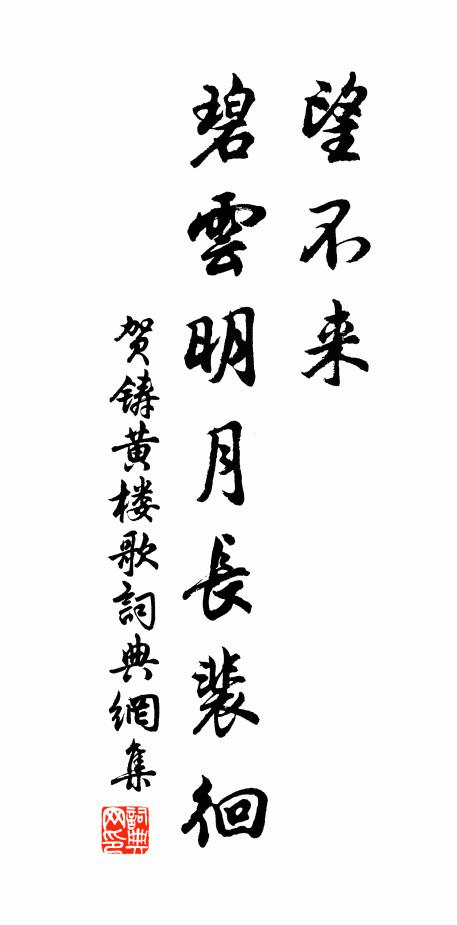 望不来
碧雲明月長裴徊
贺鋳黄楼歌詞典網集
詞典
网印